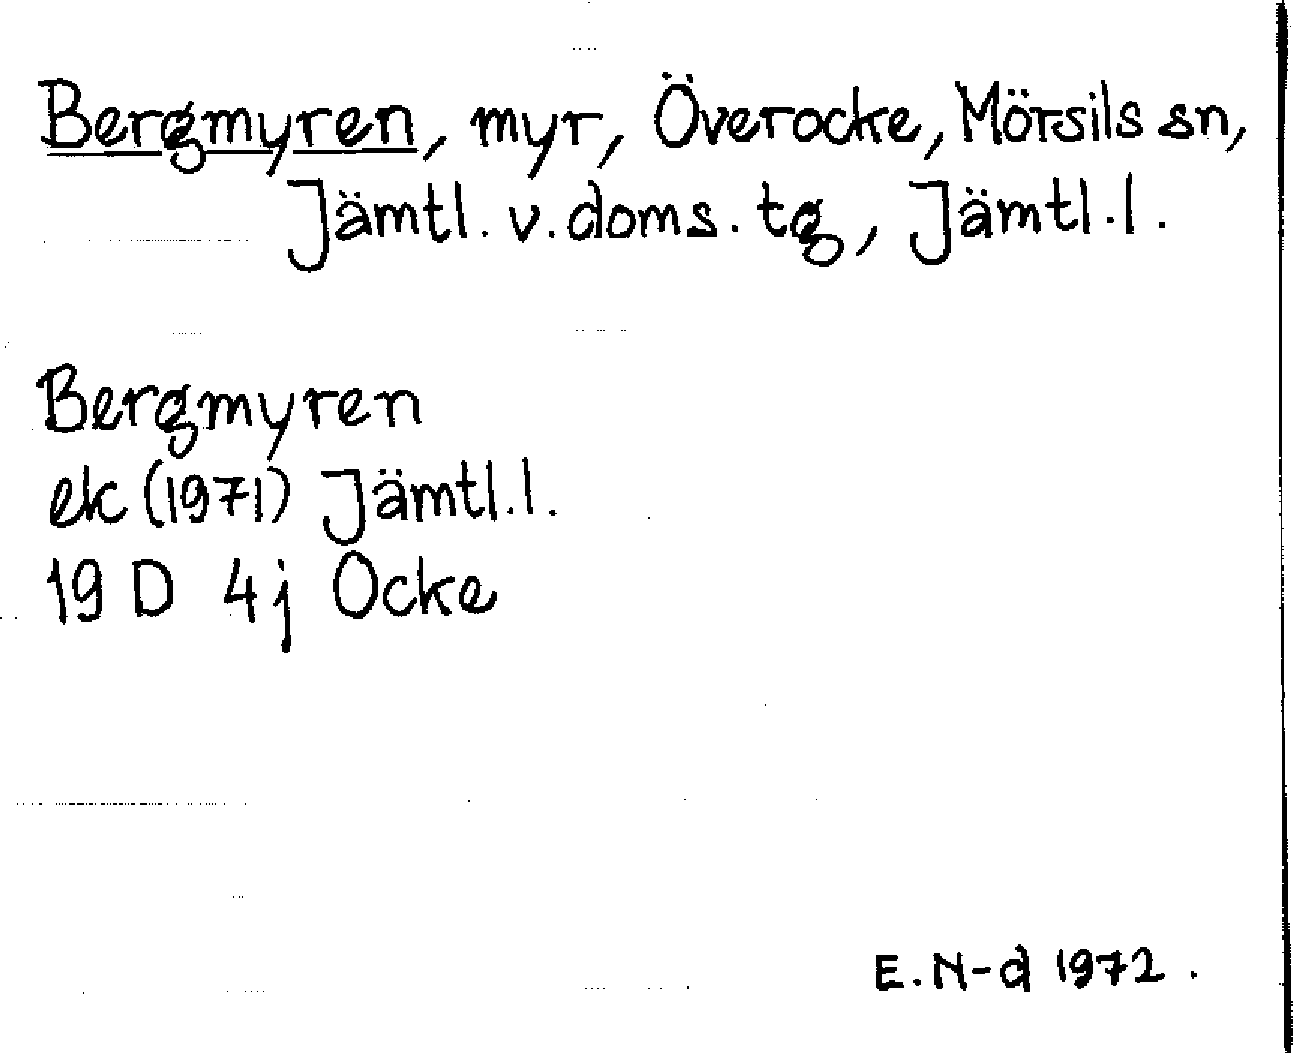 Bergmyren, myr, Överocke, Mörsils sn,
Jämtl. v. doms. tg, Jämtl. l.
Bergmyren
ek (1971) Jämtl. l.
19 D 4j Ocke
E. N-d 1972.